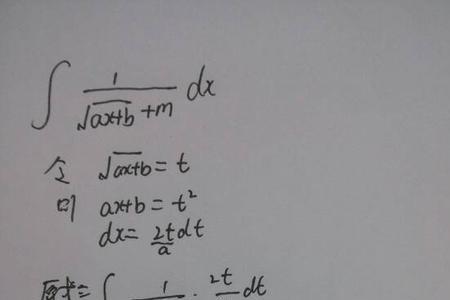 ∫ 1/(√(ax+b) +m) dx
令 √(ax+b) = t
则 ax+b = t²
dx = 2t/a dt
原式 = ∫ 1 · 2t dt